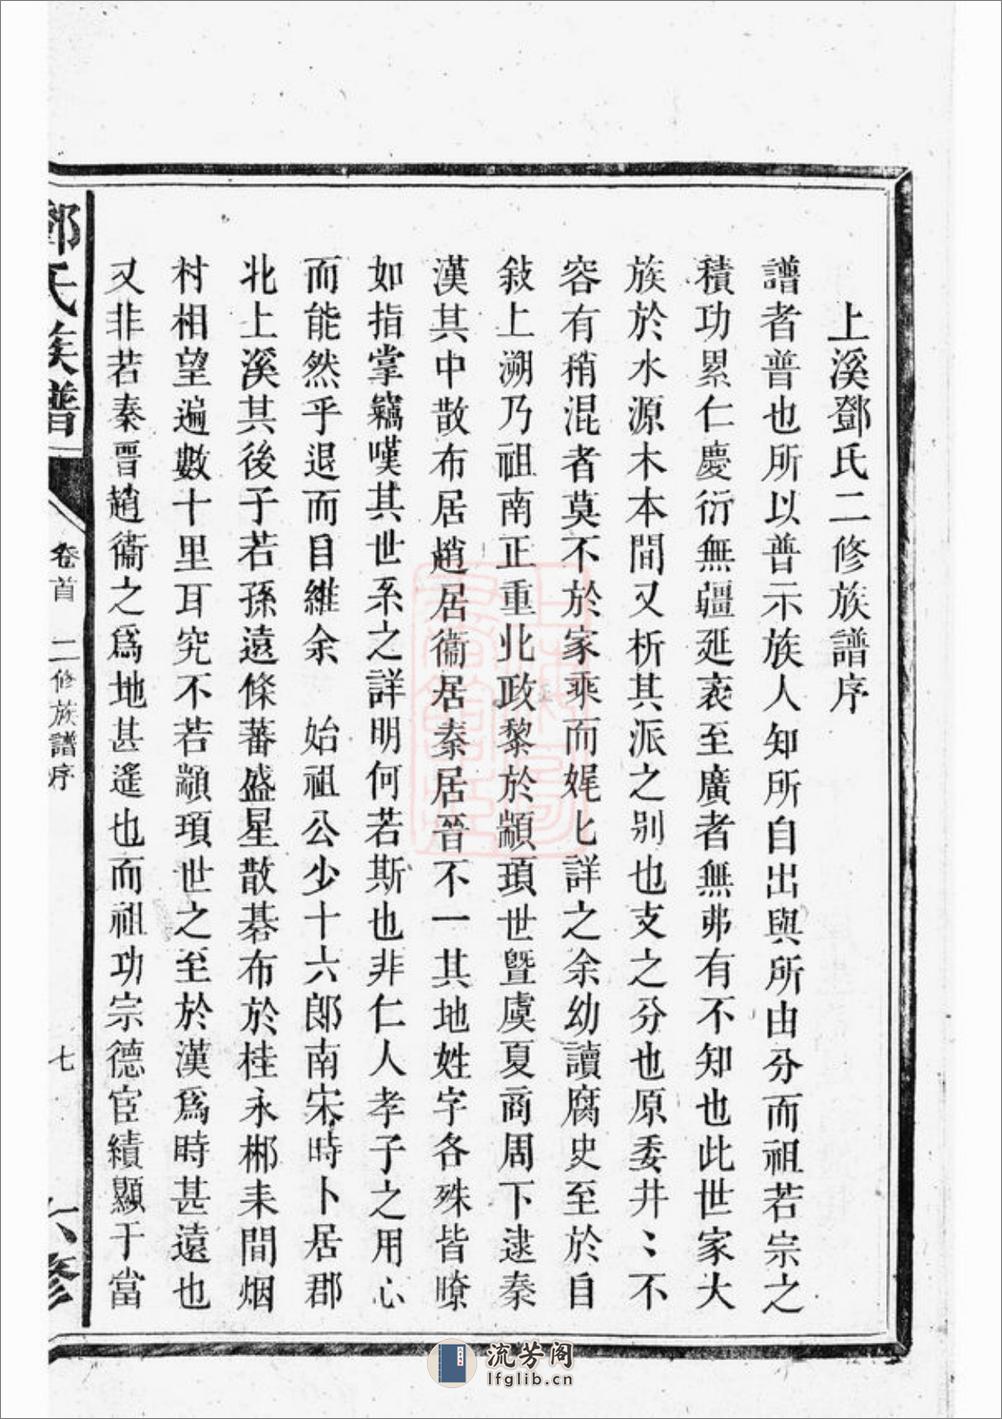 上溪鄧氏二修族譜序
譜者普也所以普示族人知所自出與所由分而祖若宗之
積功累仁慶衍無疆延袤至廣者無弗有不知也此世家大
族於水源木本間又析其派之別也支之分也原委井〻不
容有稍混者莫不於家乘而娓〻詳之余幼讀腐史至於自
敍上溯乃祖南正重北政黎於顓頊世曁虞夏商周下逮秦
漢其中散布居趙居衞居秦居晉不一其地姓字各殊皆暸
如指掌竊嘆其世系之詳明何若斯也非仁人孝子之用心
而能然乎退而自維余　始祖公少十六郎南宋時卜居郡
北上溪其後子若孫遠條蕃盛星散碁布於桂永郴耒間烟
村相望遍數十里耳究不若顓頊世之至於漢爲時甚遠也
又非若秦晋趙衞之爲地甚遙也而祖功宗德宦績顯于當
鄧氏族譜
卷首
二修族譜序
七
六修
流芳阁
lfglib.cn